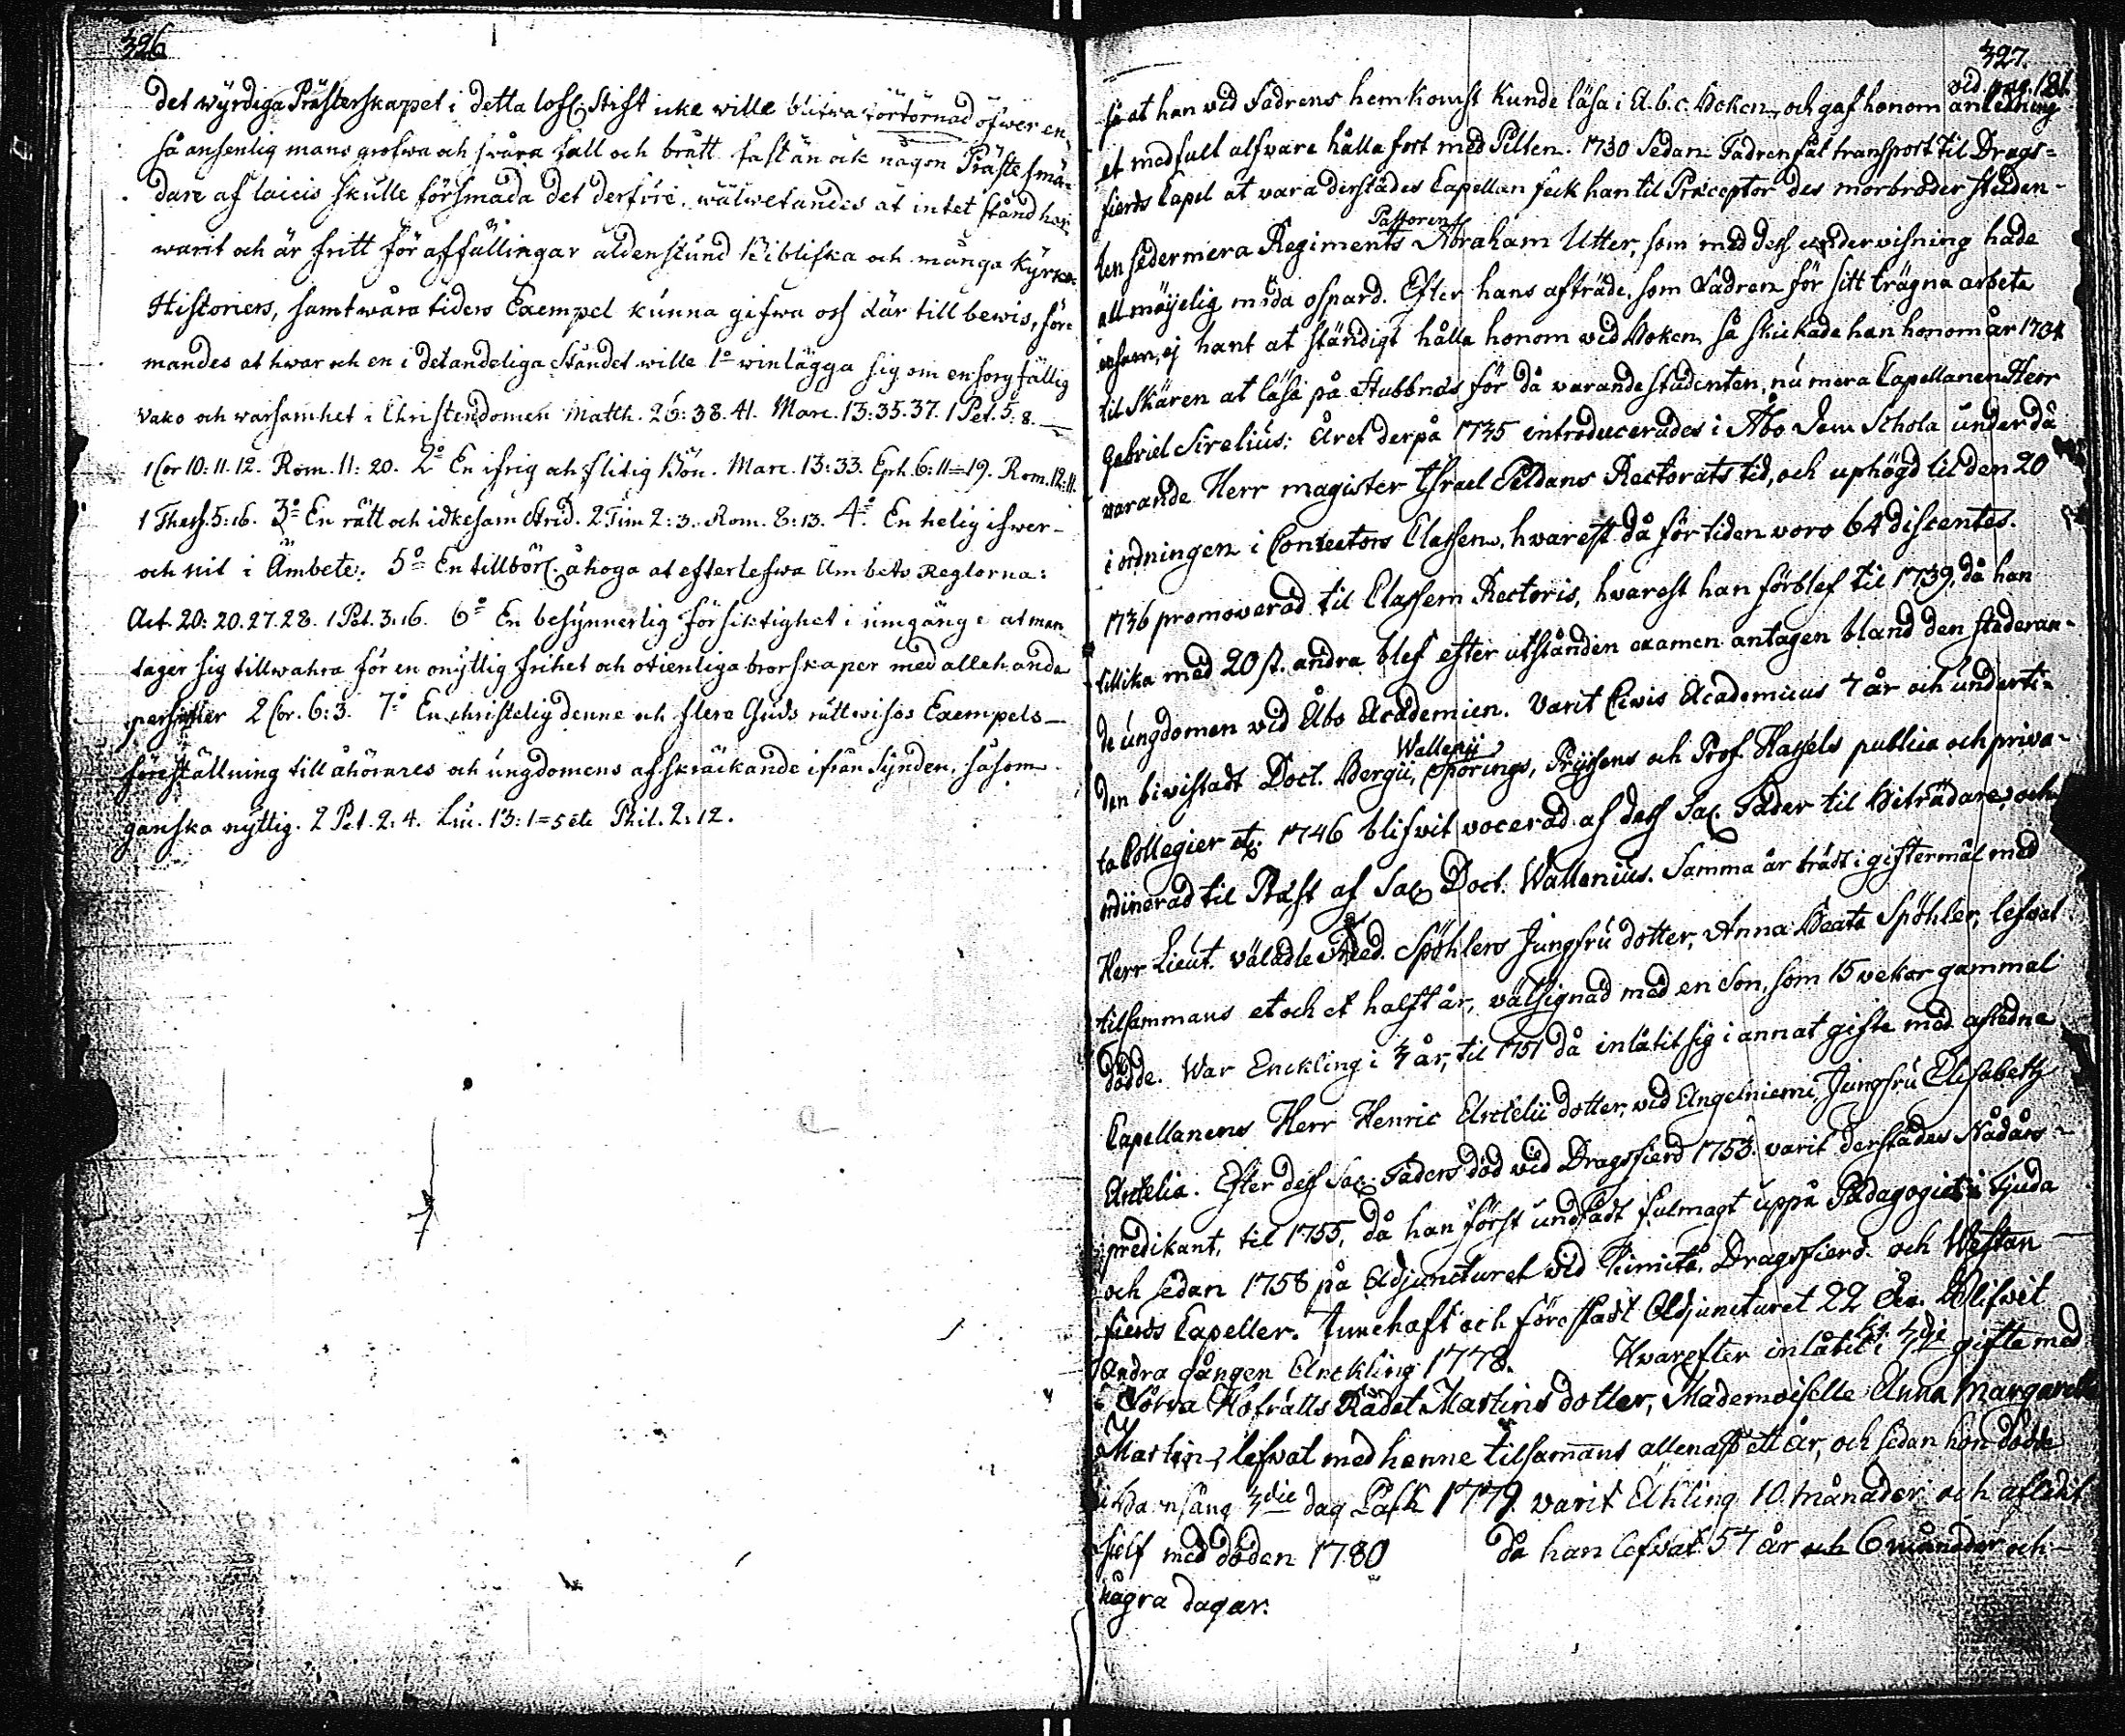 326
det wyrdiga Prästerskapet i detta lofl. Stift icke wille blifwa förtörnad öfwer en
så ansenlig mans grofwa och swåra fall och brått fast än ock någon Präste smä-
dare af laicis skulle försmäda det derföre, wälwetandes at intet stånd har
warit och är fritt för affällingar aldenstund Bibliska och många Kyrko-
Historiers, samt wåra tiders Exempel kunna gifwa oss där till bewis, för-
mandes at hwar och en i det andeliga Ståndet wille 1° winlägga sig om en sorgfällig
vako och warsamhet i Christendomen Matth. 26: 38. 41. Marc. 13: 35. 37. 1 Pet. 5: 8.
1 Cor 10: 11. 12. Rom. 11: 20. 2° En ifrig och flitig Bön. Marc. 13: 33. Eph. 6: 11=19. Rom. 12: 11.
1 Thess. 5: 16. 3° En rätt och idkesam strid. 2 Tim 2: 3. Rom. 8: 13. 4° En helig ifwer
och nit i Ämbete. 5° En tillbörl. åhoga at efterlefwa Ämbets Reglorna:
Act. 20: 20. 27. 28. 1 Pet. 3: 16. 6° En besynnerlig försiktighet i umgänge at man
tager sig tillwahra för en onyttig frihet och otienliga brorskaper med allehanda
personer 2 Cor. 6: 3. 7° En christelig denne och flere Guds rättwisas Exempels
föreställning till åhörares och ungdomens afskräckande ifrån Synden, såsom
ganska nyttig. 2 Pet. 2: 4. Luc. 13: 1=5 etc Phil. 2: 12.
327.
vid. pag. 121.
så at han vid Fadrens hemkomst kunde läsa i A.b.c. Boken, och gaf honom anledning
et med fult alfvare hålla fort med Pilten. 1730 Sedan Fadren fåt transport til Drags-
fierds Capel at vara derstädes Capellan feck han til Præceptor des morbroder studen-
Pastoren
ten sedermera Regiments Abraham Utter, som med dess undervisning hade
all möyelig möda ospard. Efter hans afträde, som Fadren för sitt trägna arbete
ensam, ej hant at ständigt hålla honom vid Boken, så skickade han honom år 1734
til Skären at läsa på Stubbnäs för då varande studenten, nu mera Capellanen Herr
Gabriel Sirelius: Året derpå 1735 introducerades i Åbo Dom Schola under då
varande Herr magister Israel Peldans Rectorats tid, och uphögd til den 20
i ordningen i Conrectors Classen, hvarest då för tiden voro 64 discentes.
1736 promoverad til Classem Rectoris, hvarest han förblef til 1739, då han
tillika med 20 st. andra blef efter utstånden examen antagen bland den studeran-
de ungdomen vid Åbo Academien. Varit Civis Academicus 7 år och underti-
Wallenii
den bivistadt Doct. Bergii, Spörings, Pryssens och Prof. Hassels publica och priva-
ta Collegier etc. 1746 blifvit vocerad af dess Sal. Fader til Biträdare, och
ordinerad til Präst af Sal. Doct. Wallenius. Samma år trädt i giftermål med
Herr Lieut. väladle Fried. Spöhlers Jungfru dotter, Anna Beata Spöhler, lefvat
tilsammans et och et halft år, välsignad med en Son, som 15 vekor gammal
dödde. War Enckling i 3 år, til 1751 då inlåtit sig i annat gifte med afledne
Capellanens Herr Henric Arctelii dotter, vid Angelniemi, Jungfru Elisabeth
Arctelia. Efter dess Sal. Faders död vid Dragsfierd 1753. varit derstädes Nådårs-
predikant, til 1755, då han först undfådt fulmagt uppå Pædagogiet i Tjuda
och sedan 1758 på Adjuncturet vid Kimito, Dragsfierd och Westan
fierds Capeller. Innehaft och förestadt Adjuncturet 22 år. Blifvit
andra gången Enckling 1778. Hvarefter inlåtit i 3dje gifte med
Hofrätts Rådet Martins dotter, Mademoiselle Anna Margaretha
Martin, lefvat med henne tilsamans allenast ett år, och sedan hon dödde
3die dag Påsk 1779. varit Ehkling 10 månader och afledit
sielf med döden 1780 då han lefvat 57 år och 6 månader och
några dagar.